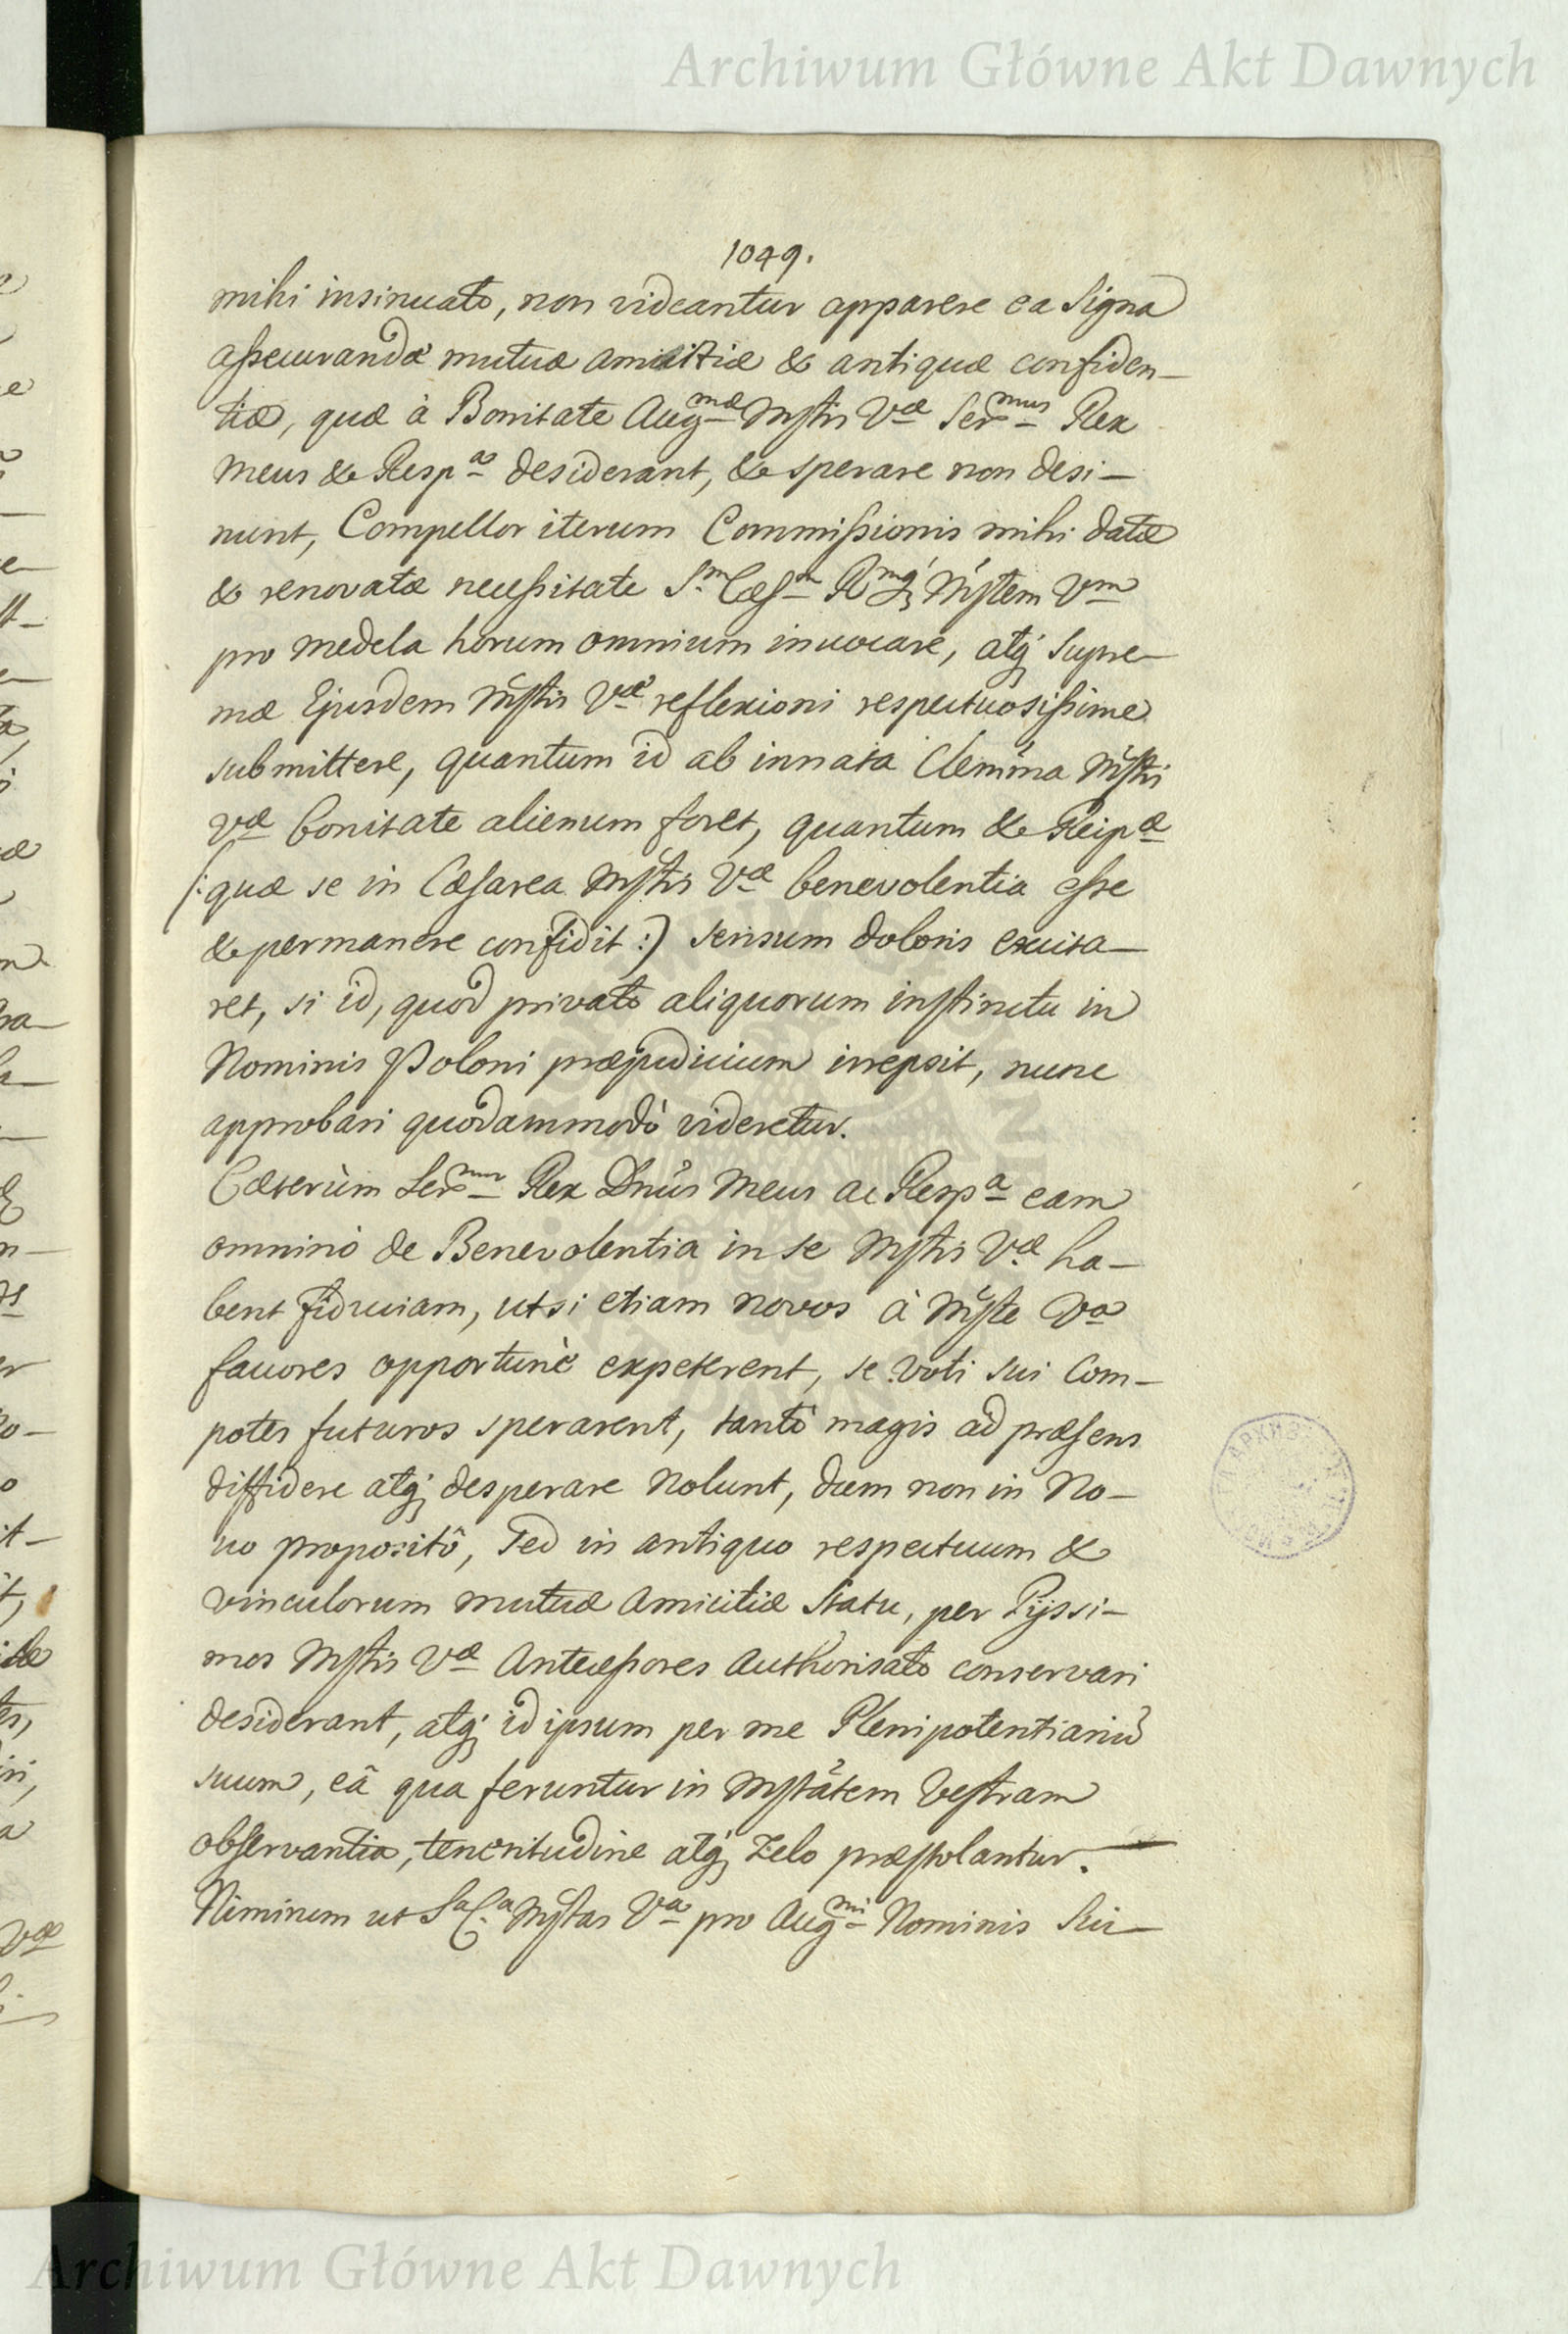 Archiwum Główne Akt Dawnych
1049.
mihi insinuato, non videantur apparere ea Signa
assecurandæ mutuæ amicitiæ & antiquæ confiden-
tiæ, quæ à Bonitate Augmæ Mſtis Væ Sermus Rex
meus & Respa desiderant, & sperare non desi-
nunt, Compellor iterum Commiſsionis mihi datæ
& renovatæ neceſsitate Sm Cæſm Rmq́; Mſtem Vm
pro medela horum omnium invocare, atq́; Supre-
mæ Ejusdem Mſtis Væ reflexioni respectuosiſsime
submittere, quantum id ab innata Clemma Mſtis
Væ bonitate alienum foret, quantum & Reipæ
(: quæ se in Cæſarea Mſtis Væ benevolentia eſse
& permanere confidit :) sensum doloris excita-
ret, si id, quod privato aliquorum inſtinctu in
Nominis Poloni præjudicium irrepsit, nunc
approbari quodammodò videretur.
Cæterùm Sermus Rex Dnūs Meus ac Respa eam
omninò de Benevolentia in se Mſtis Væ ha-
bent fiduciam, ut si etiam novos à Mſte Va
favores opportunè expeterent, se voti sui Com-
potes futuros sperarent, tantò magis ad præſens
diffidere atq́; desperare nolunt, dum non in No-
vo propositô, Sed in antiquo respectuum &
vinculorum mutuæ Amicitiæ Statu, per Pijssi-
mos Mſtis Væ Anteceſsores Authorisato conservari
desiderant, atq́; id ipsum per me Plenipotentiariū
suum, eâ qua feruntur in Mſtātem Veſtram
obſervantia, teneritudine atq́; Zelo præſtolantur.
Nimirum ut Sa Ca Mſtas Va pro Augmi Nominis Sui
Archiwum Główne Akt Dawnych